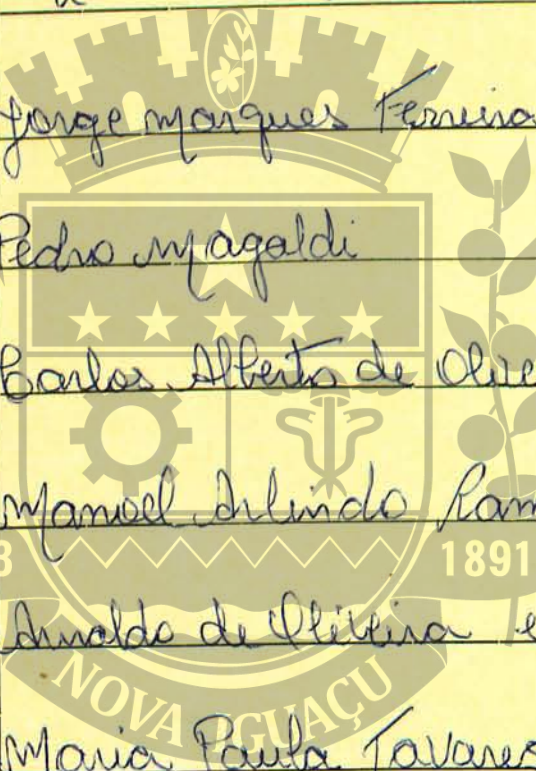 Jorge Marques Ferreira
Pedro Magaldi
Carlos Alberto de Olive
Manoel Arlindo Ram
1891
Arnaldo de Oliveira e
NOVA IGUAÇU
Maria Paula Tavares